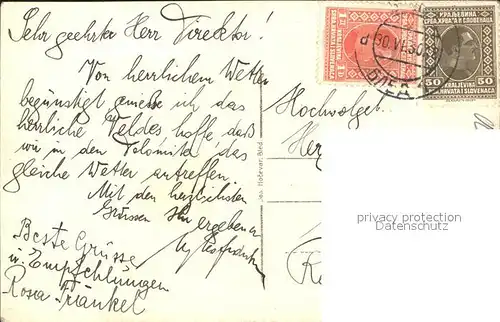 Sehr geehrter Herr Direktor!
Von herrlichem Wetter
begünstigt genieße ich das
herrliche Veldes, hoffe, daß
wir in den Dolomiten das
gleiche Wetter antreffen.
Mit den herzlichsten
Grüssen Ihr ergebener
Beste Grüsse
u. Empfehlungen
Rosa Fränkel
Hochwolgeb.
d 30.VI.30
БЛЕД
КРАЉЕВИНА
СРБА, ХРВАТА И СЛОВЕНАЦА
50 50
KRALJEVINA
HRVATA I SLOVENACA
Jos. Hočevar, Bled
privacy protection
Datenschutz